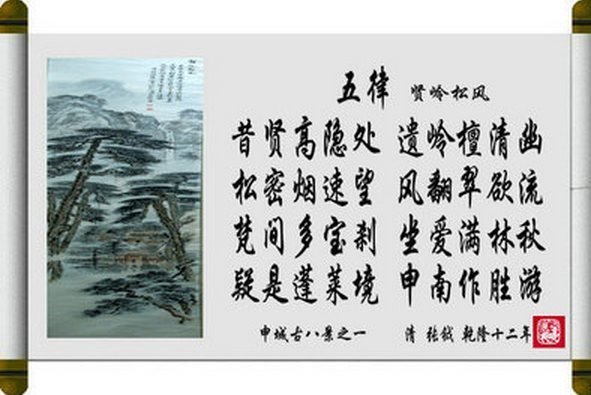 五律 贤岭松风
昔贤高隐处 遗岭檀清幽
松密烟速望 风翻翠欲流
梵间多宝刹 坐爱满林秋
疑是蓬莱境 申南作胜游
申城古八景之一 清 张钺 乾隆十二年